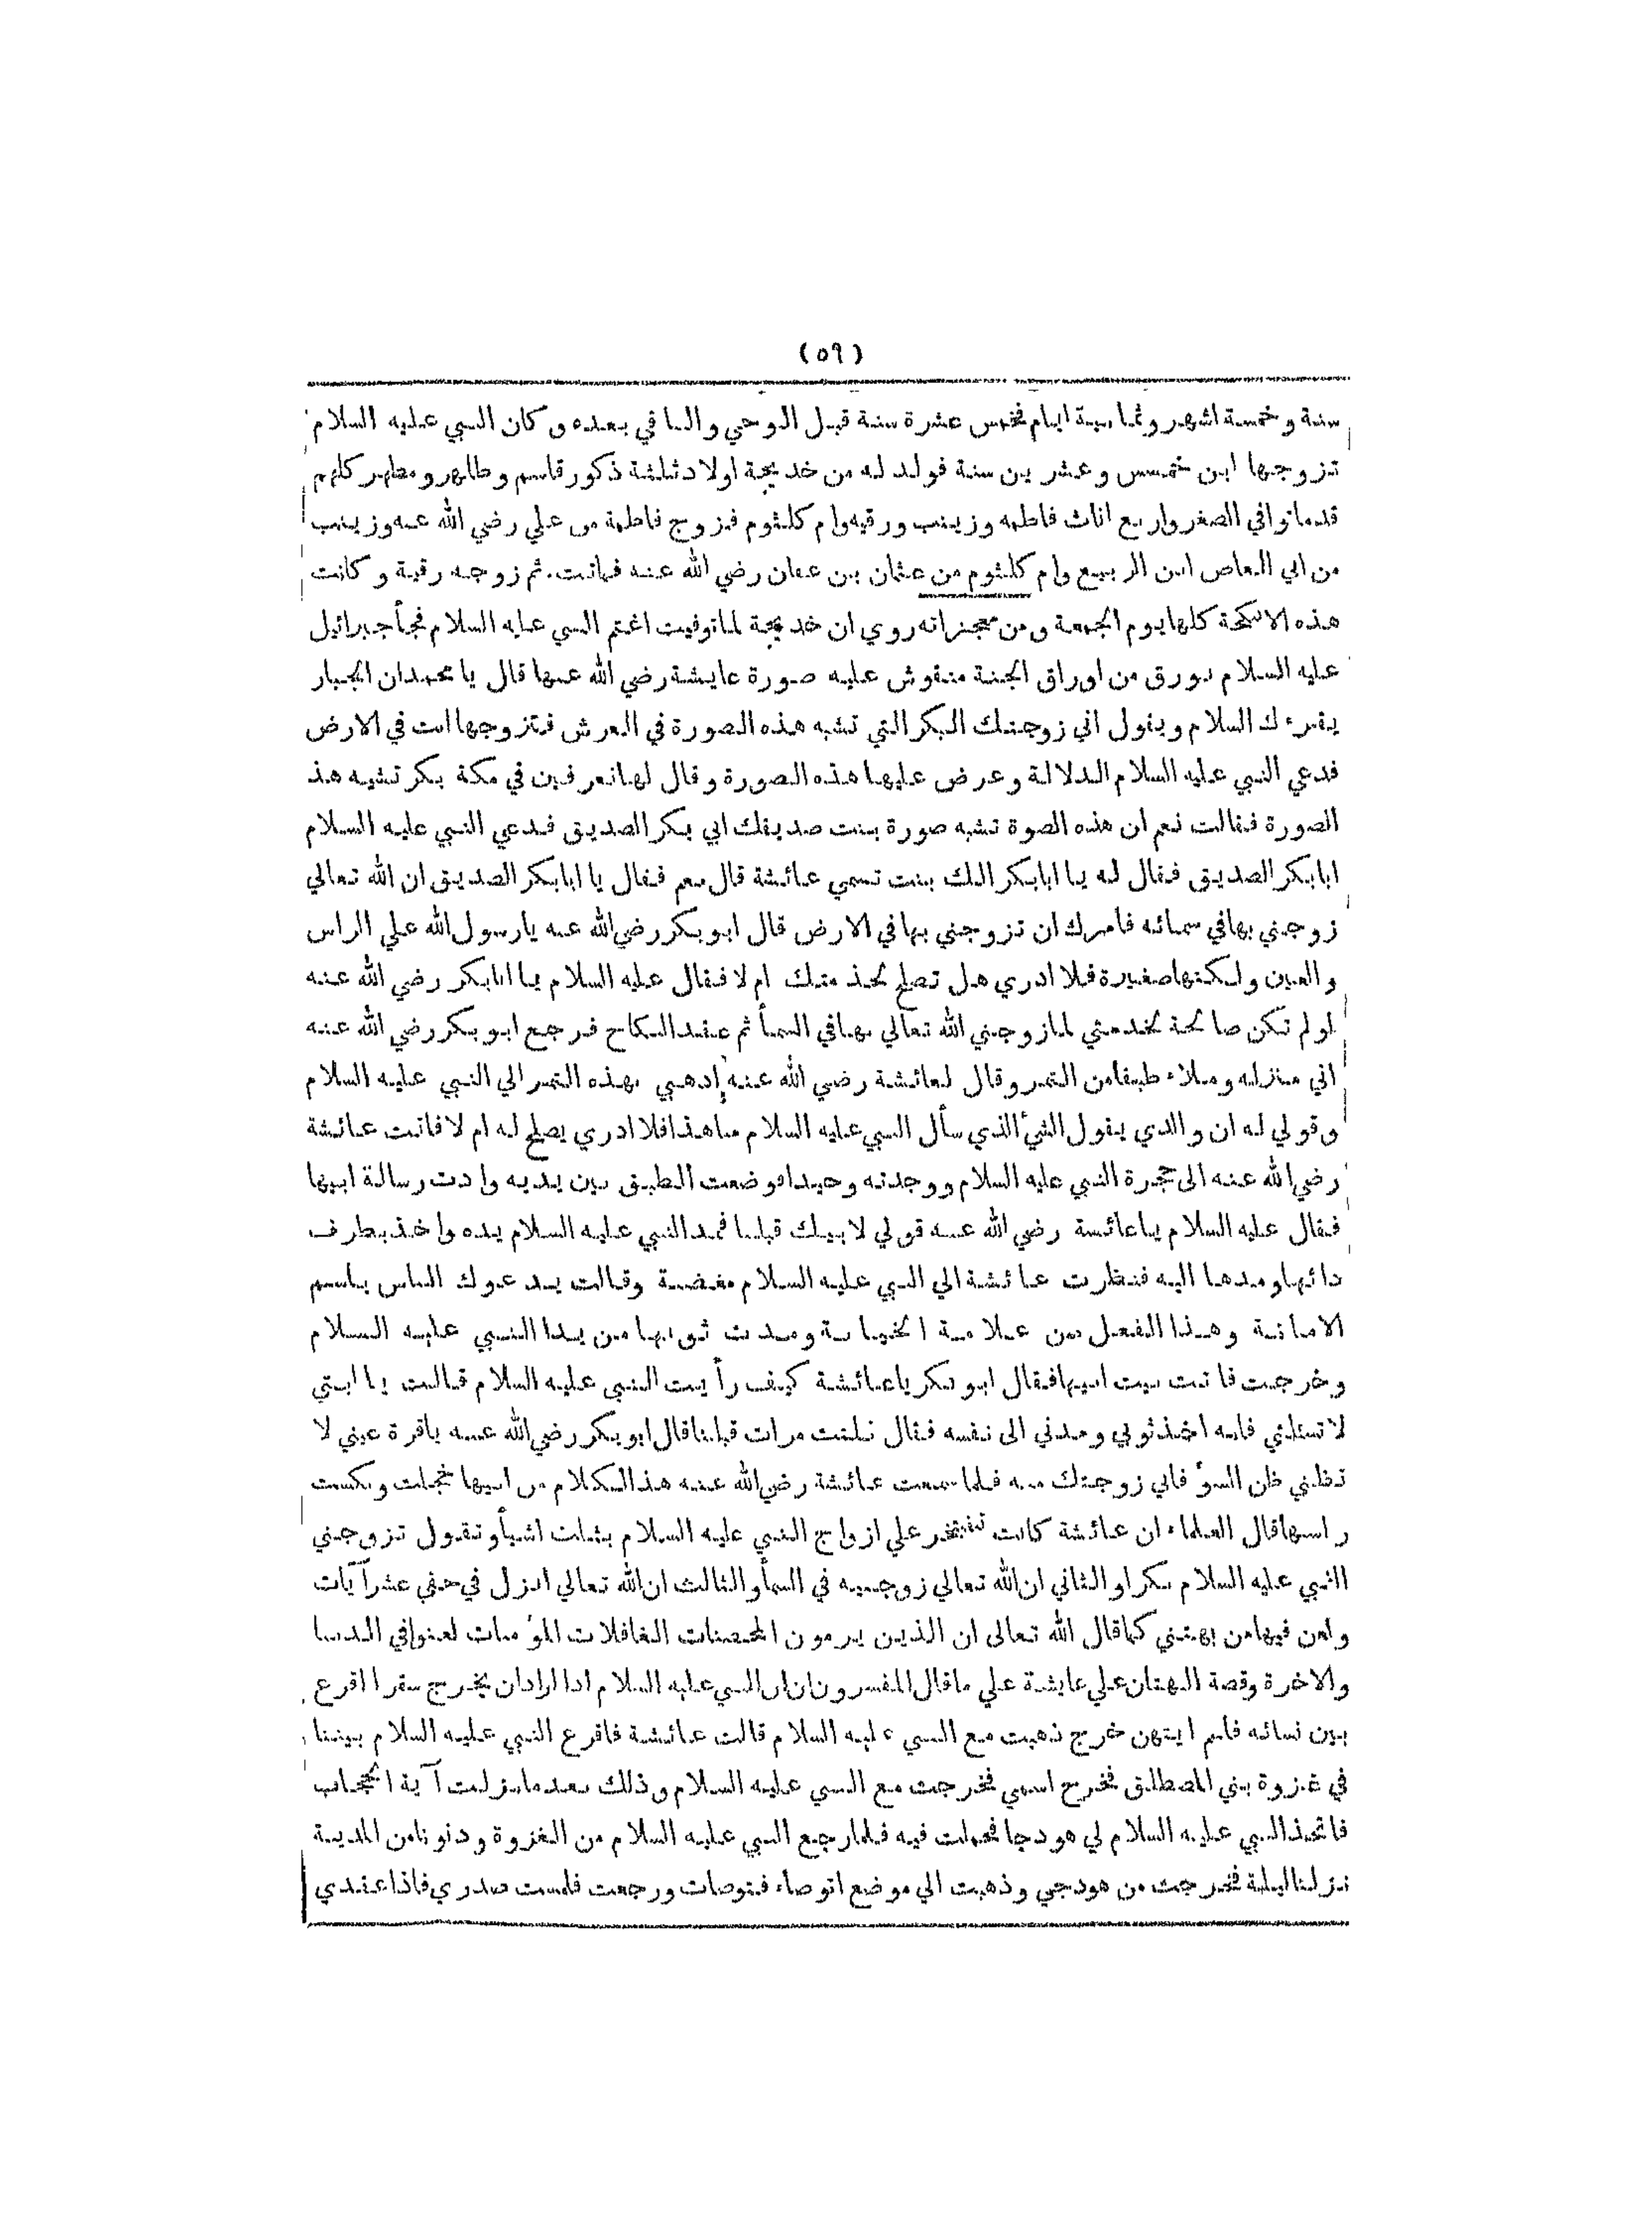 (٥٩)
سنة وخمسة اشهر وثمانية ايام فخمس عشرة سنة قبل الوحي والباقي بعده وكان النبي عليه السلام
تزوجها ابن خمسس وعشرين سنة فولد له من خديجة اولاد ثلثة ذكور قاسم وطاهر ومطهر كلهم
قدماتوا في الصغر واربع اناث فاطمه وزينب ورقيه وام كلثوم فزوج فاطمة من علي رضي الله عنه وزينب
من ابي العاص ابن الربيع وام كلثوم من عثمان بن عفان رضي الله عنه فماتت. ثم زوجه رقية وكانت
هذه الانكحة كلها يوم الجمعة ومن معجزاته روي ان خديجة لما توفيت اغتم النبي عليه السلام فجأ جبرائيل
عليه السلام بورق من اوراق الجنة منقوش عليه صورة عايشة رضي الله عنها قال يا محمد ان الجبار
يقرء ك السلام ويقول اني زوجتك البكر التي تشبه هذه الصورة في العرش فتزوجها انت في الارض
فدعي النبي عليه السلام الدلالة وعرض عليها هذه الصورة وقال لها تعرفين في مكة بكر تشبه هذ
الصورة فقالت نعم ان هذه الصوة تشبه صورة بنت صديقك ابي بكر الصديق فدعي النبي عليه السلام
ابابكر الصديق فقال له يا ابابكر الك بنت تسمي عائشة قال نعم فقال يا ابابكر الصديق ان الله تعالي
زوجني بها في سمائه فامرك ان تزوجني بها في الارض قال ابوبكر رضي الله عنه يا رسول الله علي الراس
والعين ولكنها صغيرة فلا ادري هل تصلح لخذ متك ام لا فقال عليه السلام يا ابابكر رضي الله عنه
لولم تكن صالحة لخدمتي لما زوجني الله تعالي بها في السمأ ثم عقد النكاح فرجع ابوبكر رضي الله عنه
اني منزله وملاء طبقا من التمر وقال لعائشة رضي الله عنه إدهبي بهذه التمر الي النبي عليه السلام
وقولي له ان والدي يقول الشئ الذي سأل النبي عليه السلام منا هذا فلا ادري يصلح له ام لا فاتت عائشة
رضي الله عنه الى حجرة النبي عليه السلام ووجدته وحيدا فوضعت الطبق بين يديه وادت رسالة ابيها
فقال عليه السلام يا عائسة رضي الله عنه قولي لابيك قبلنا فمد النبي عليه السلام يده واخذ بطرف
دائها ومدها اليه فنظرت عائشة الي النبي عليه السلام مغضبة وقالت يدعوك الناس باسم
الامانة وهذا الفعل من علامة الخيانة ومدت ثوبها من يدا النبي عليه السلام
وخرجت فاتت بيت ابيها فقال ابوبكر يا عائشة كيف رأيت النبي عليه السلام قالت يا ابتي
لا تسئلني فانه اخذ ثوبي ومدني الى نفسه فقال ثلث مرات قبلنا قال ابوبكر رضي الله عنه ياقرة عيني لا
تظني ظن السؤ فاني زوجتك منه فلما سمعت عائشة رضي الله عنه هذا الكلام من ابيها خجلت ونكست
راسها قال العلماء ان عائشة كانت تفتخر علي ازواج النبي عليه السلام بثلث اشيأ وتقول تزوجني
النبي عليه السلام بكرا والثاني ان الله تعالي زوجنيه في السمأ والثالث ان الله تعالي انزل في حقي عشر آيات
ولعن فيها من بهتني كما قال الله تعالى ان الذين يرمون المحصنات الغافلات المؤمنات لعنوا في الدنيا
والاخرة وقصة البهتان علي عايشة علي ما قال المفسرون ان النبي عليه السلام اذا اراد ان يخرج سفرا اقرع
بين نسائه فاسم ايتهن خرج ذهبت مع النبي عليه السلام قالت عائشة فاقرع النبي عليه السلام بيننا
في غزوة بني المصطلق فخرج اسمي فخرجت مع النبي عليه السلام وذلك بعد ما نزلت آية الحجاب
فاتخذ النبي عليه السلام لي هودجا فحملت فيه فلما رجع النبي عليه السلام من الغزوة ودنونا من المدينة
نزلنا ليلة فخرجت من هودجي وذهبت الي موضع اتوضاء فتوضات ورجعت فلمست صدري فاذا عقدي